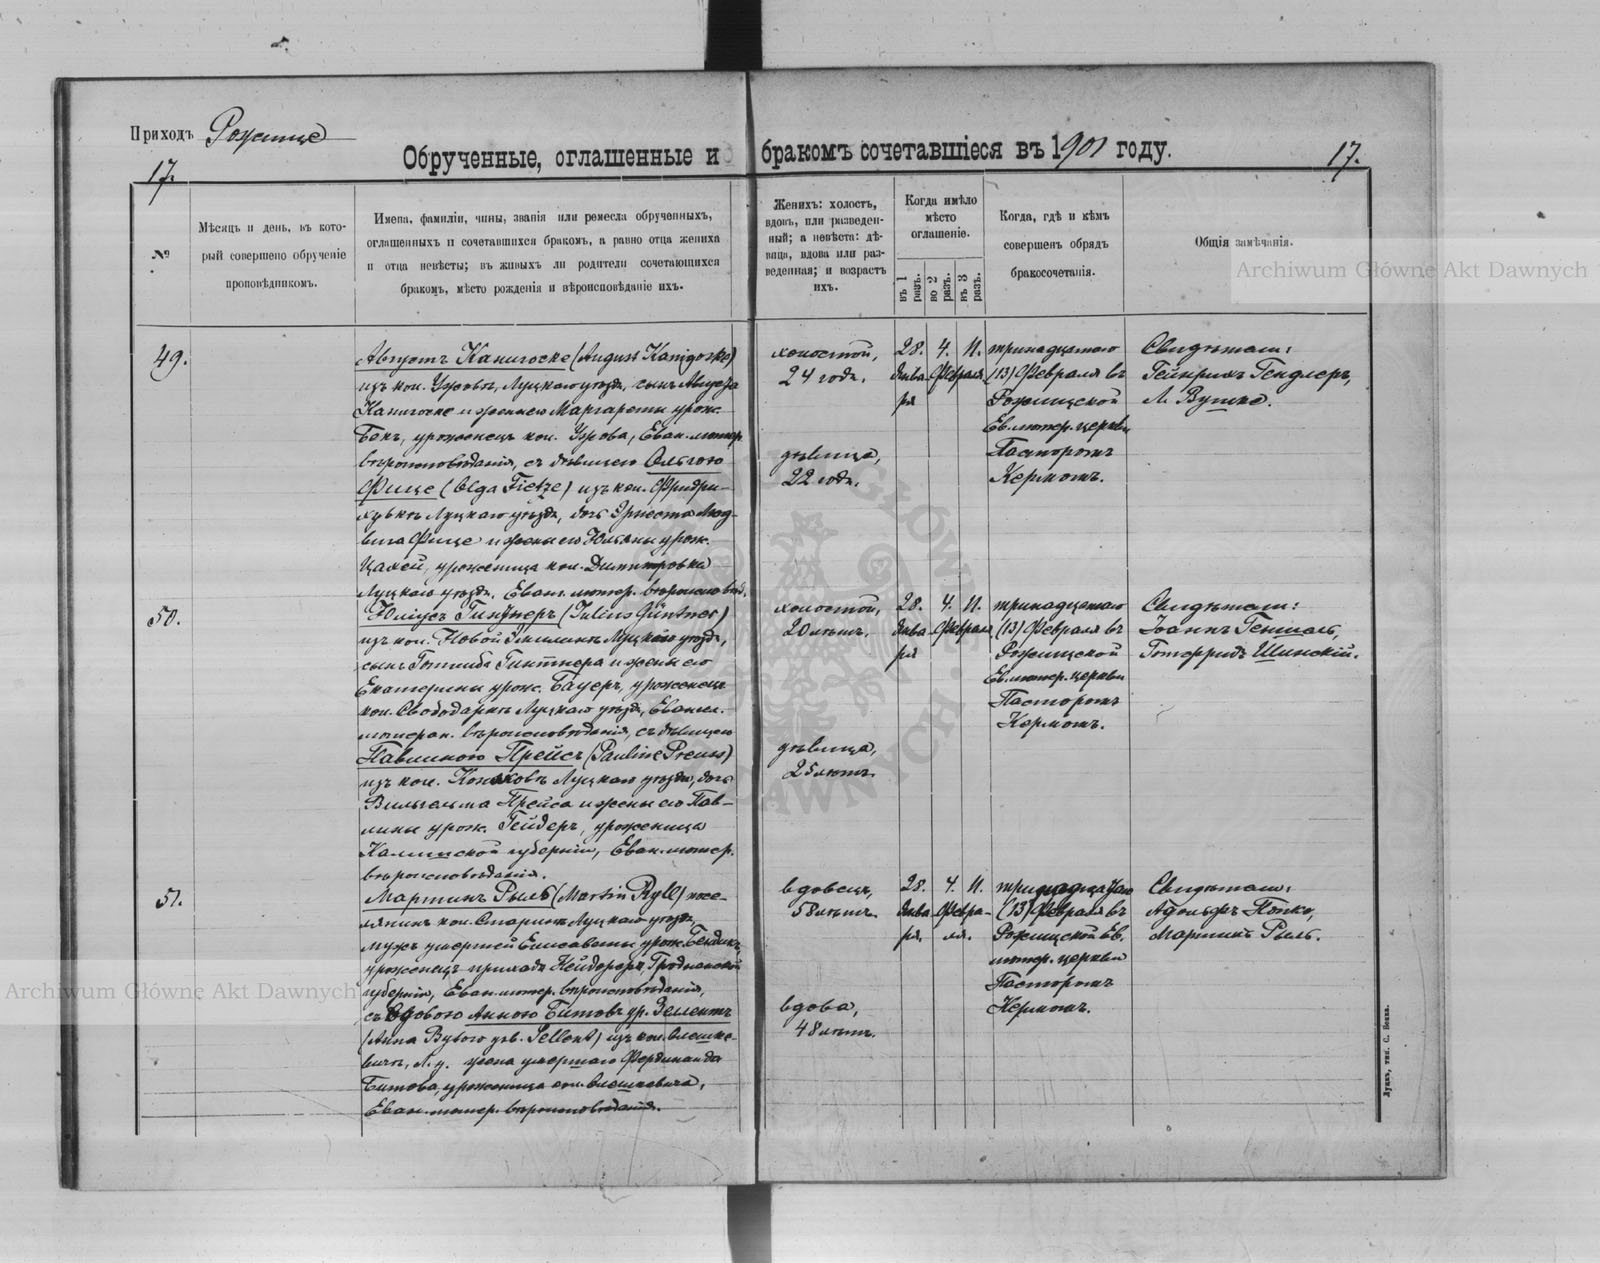 Приходъ Рожище
17.
Обрученные, оглашенные и бракомъ сочетавшіеся въ 1901 году.
17.
№
Мѣсяцъ и день, въ кото-
рый совершено обрученіе
проповѣдникомъ.
Имена, фамиліи, чины, званія или ремесла обрученныхъ,
оглашенныхъ и сочетавшихся бракомъ, а равно отца жениха
и отца невѣсты; въ живыхъ ли родители сочетающихся
бракомъ, мѣсто рожденія и вѣроисповѣданіе ихъ.
Женихъ: холостъ,
вдовъ, или разведен-
ный; а невѣста: дѣ-
вица, вдова или раз-
веденная; и возрастъ
ихъ.
Когда имѣло
мѣсто
оглашеніе.
въ 1 разъ.
во 2 разъ.
въ 3 разъ.
Когда, гдѣ и кѣмъ
совершенъ обрядъ
бракосочетанія.
Общія замѣчанія.
49.
Августъ Канигоске (August Kanigoske)
изъ кол. Ужова, Луцкаго уѣзда, сынъ Августа
Канигоске и жены его Маргареты урож.
Бекъ, уроженецъ кол. Ужова, Еван. лютер.
вѣроисповѣданія, съ дѣвицею Ольгою
Фице (Olga Fietze) изъ кол. Фридри-
ховкъ Луцкаго уѣзда, дочь Эрнеста Люд-
вига Фице и жены его Юльяны урож.
Цахей, уроженица кол. Димитровки
Луцкаго уѣзда, Еван. лютер. вѣроисповѣд.
холостой,
24 года.
дѣвица,
22 года.
28.
Янва
ря
4.
11.
Февраля
тринадцатаго
(13) Февраля въ
Рожищской
Ев. лютер. церкви
Пасторомъ
Кермомъ.
Свидѣтели:
Гейнрихъ Гендлеръ,
Л. Вушке.
50.
Юліусъ Гинтнеръ (Julius Güntner)
изъ кол. Новой Земли Луцкаго уѣзда,
сынъ Готлиба Гинтнера и жены его
Екатерины урож. Бауеръ, уроженецъ
кол. Свободарка Луцкаго уѣзда, Евангел.
лютеран. вѣроисповѣданія, съ дѣвицею
Павлиною Прейсъ (Pauline Preuss)
изъ кол. Ужова Луцкаго уѣзда, дочь
Вильгельма Прейса и жены его Пав-
лины урож. Гейдеръ, уроженица
Калишской губерніи, Еван. лютер.
вѣроисповѣданія.
холостой,
20 лѣтъ.
дѣвица,
25 лѣтъ.
28.
Янва
ря
4.
11.
Февраля
тринадцатаго
(13) Февраля въ
Рожищской
Ев. лютер. церкви
Пасторомъ
Кермомъ.
Свидѣтели:
Іоаннъ Геншель,
Готфридъ Шинскій.
51.
Мартинъ Рыль (Martin Ryll) посе-
лянинъ кол. Луцкаго уѣзда,
мужъ умершей Елисаветы урож.
уроженецъ прихода Нейдорфъ, Гродненской
губерніи, Еван. лютер. вѣроисповѣданія,
съ вдовою Анною Битовъ ур. Зеллентъ
(Anna Bytow geb. Sellent) изъ кол. Олешке-
вичъ, Л. у. жена умершаго Фердинанда
Битова, уроженица кол. Олешкевича,
Еван. лютер. вѣроисповѣданія.
вдовецъ,
58 лѣтъ.
вдова,
48 лѣтъ.
28.
Янва
ря.
4.
11.
Февра-
ля.
тринадцатаго
(13) Февраля въ
Рожищской Ев.
лютер. церкви
Пасторомъ
Кермомъ.
Свидѣтели:
Адольфъ Попко,
Мартинъ Рыль.
Луцкъ, тип. С. Бокка.
Archiwum Główne Akt Dawnych
Archiwum Główne Akt Dawnych